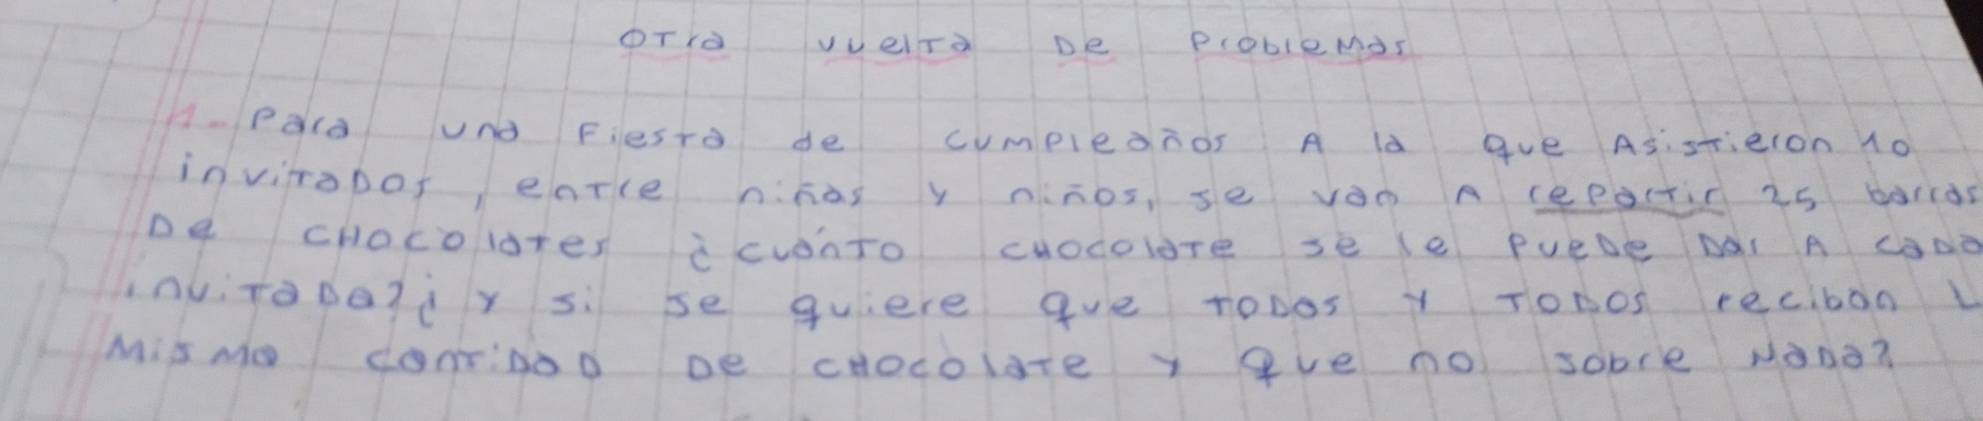 OTra vuelTa De ProbleMas
1- Para una FiesTa de cumpleaños A la que AsisTieron 10
inviTaDos, enTre niñas y niños, se van A reparTir 25 barras
De cHocolaTes ¿cuánTo cHocolaTe se le PueDe Dar A caDa
inviTaDo? ¿y si se quiere que ToDos y ToDos reciban L
MisMa canTiDaD De cHocolaTe y Que no sobre NaDa?